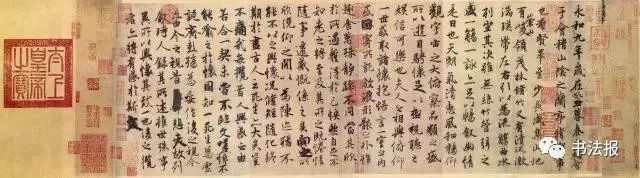 永和九年歲在癸丑暮春之初會
于會稽山陰之蘭亭脩稧事
也羣賢畢至少長咸集此地
有崇山峻領茂林脩竹又有清流激
湍暎帶左右引以為流觴曲水
列坐其次雖無絲竹管弦之
盛一觴一詠亦足以暢叙幽情
是日也天朗氣清惠風和暢仰
觀宇宙之大俯察品類之盛
所以遊目騁懷足以極視聽之
娛信可樂也夫人之相與俯仰
一世或取諸懷抱悟言一室之內
或因寄所託放浪形骸之外雖
趣舍萬殊靜躁不同當其欣
於所遇蹔得於己快然自足不
知老之將至及其所之既惓情
隨事遷感慨係之矣向之所
欣俛仰之閒以為陳迹猶不
能不以之興懷況脩短隨化終
期於盡古人云死生亦大矣豈
不痛哉每攬昔人興感之由
若合一契未嘗不臨文嗟悼不
能喻之於懷固知一死生為虛
誕齊彭殤為妄作後之視今
亦由今之視昔悲夫故列
叙時人錄其所述雖世殊事
異所以興懷其致一也後之攬
者亦將有感於斯文
太上皇帝之寶
书法报